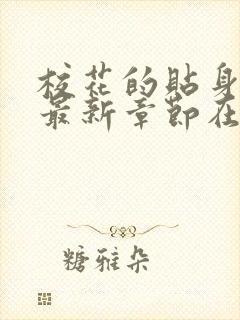 校花的贴身
最新章节在
糖雅朵